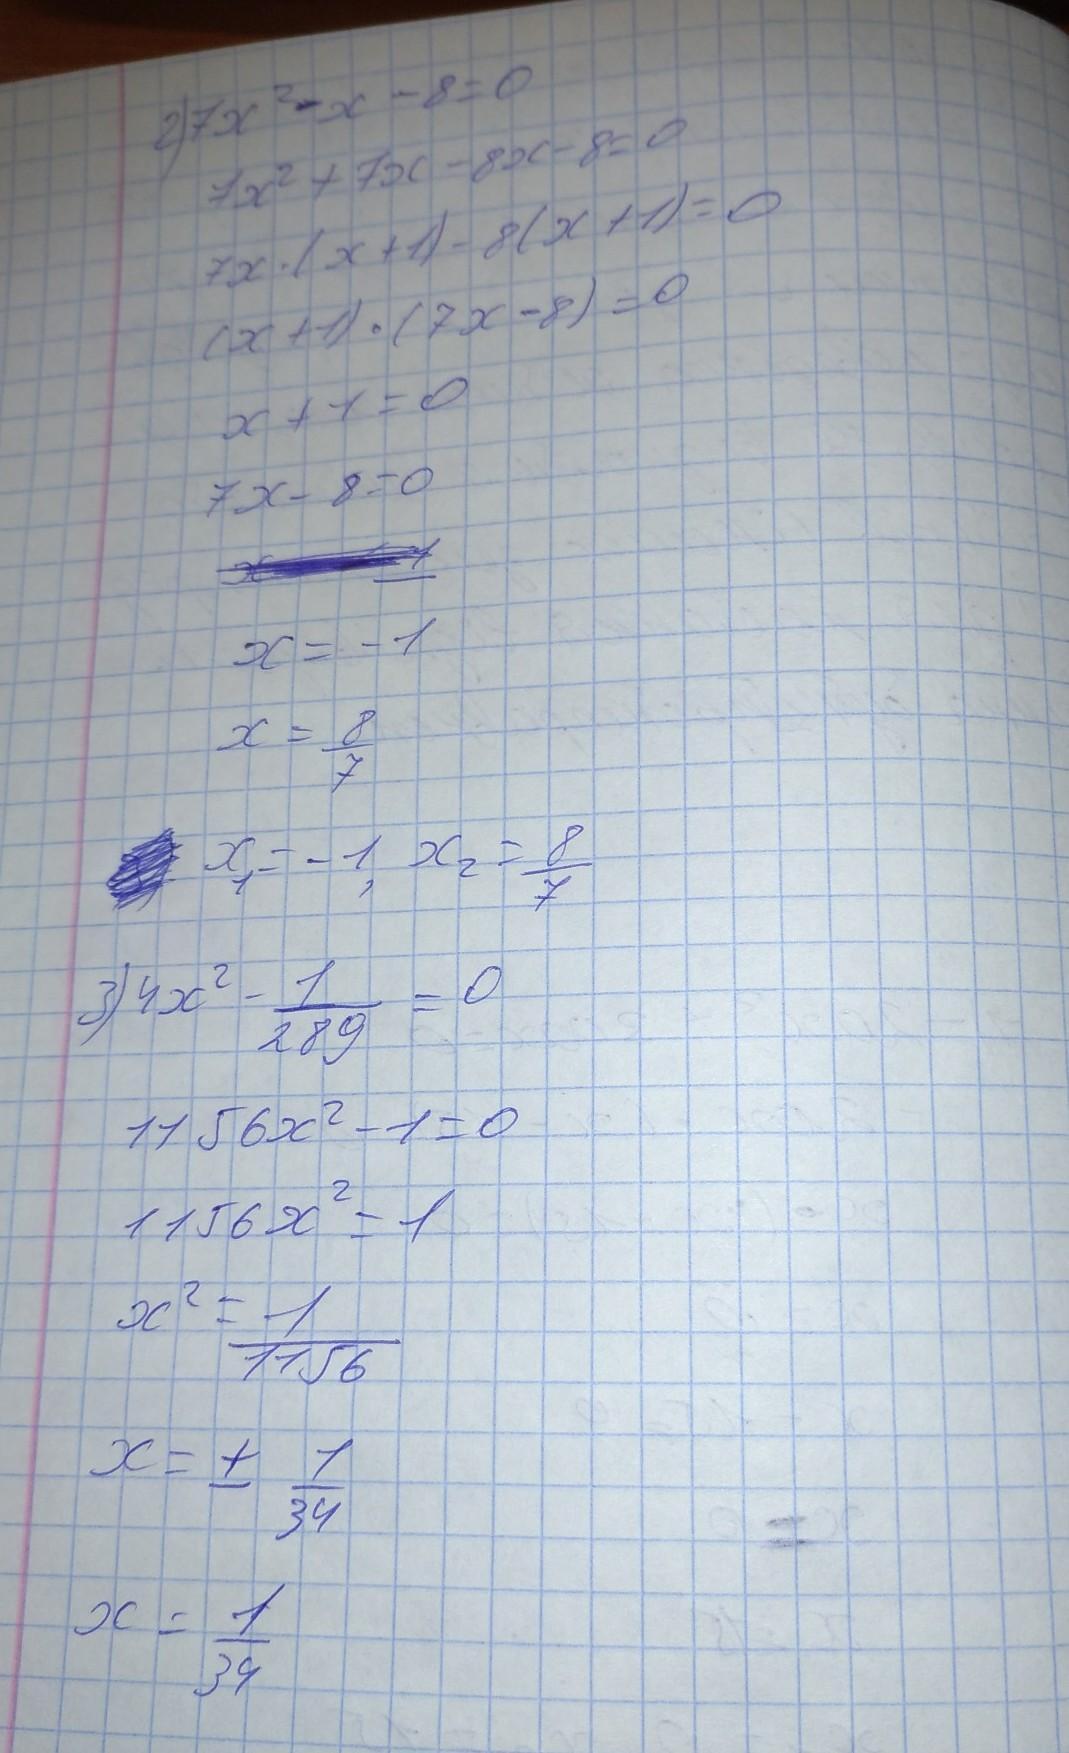 2) 7x² - x - 8 = 0
7x² + 7x - 8x - 8 = 0
7x · (x + 1) - 8(x + 1) = 0
(x + 1) · (7x - 8) = 0
x + 1 = 0
7x - 8 = 0
x = -1
x = 8/7
x₁ = -1, x₂ = 8/7
3) 4x² - 1/289 = 0
1156x² - 1 = 0
1156x² = 1
x² = 1/1156
x = ± 1/34
x = 1/34